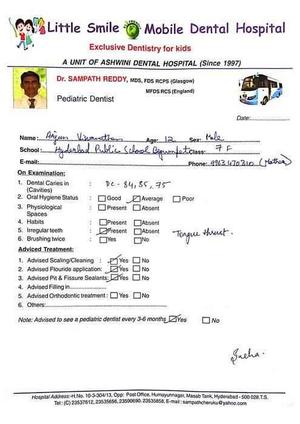 Little Smile Mobile Dental Hospital
Exclusive Dentistry for kids
A UNIT OF ASHWINI DENTAL HOSPITAL (Since 1997)
Dr. SAMPATH REDDY, MDS, FDS RCPS (Glasgow)
MFDS RCS (England)
Pediatric Dentist
Date:
Name: Arjun Viswanathan Age: 12 Sex: Male
School: Hyderabad Public School Begumpet 7 F
E-mail: Phone: (Mother)
On Examination:
1. Dental Caries in (Cavities) : DC - 84, 85, 75
2. Oral Hygiene Status : Good Average Poor
3. Physiological Spaces : Present Absent
4. Habits : Present Absent
5. Irregular teeth : Present Absent Tongue thrust.
6. Brushing twice : Yes No
Adviced Treatment:
1. Advised Scaling/Cleaning : Yes No
2. Advised Flouride application: Yes No
3. Advised Pit & Fissure Sealants: Yes No
4. Advised Filling in
5. Advised Orthodontic treatment : Yes No
6. Others:
Note: Advised to see a pediatric dentist every 3-6 months Yes No
Hospital Address: H.No. 10-3-304/13, Opp: Post Office, Humayunnagar, Masab Tank, Hyderabad - 500 028.T.S.
Tel: (C) 23537612, 23535656, 23590690. 23535858, E-mail: sampathcheruku@yahoo.com